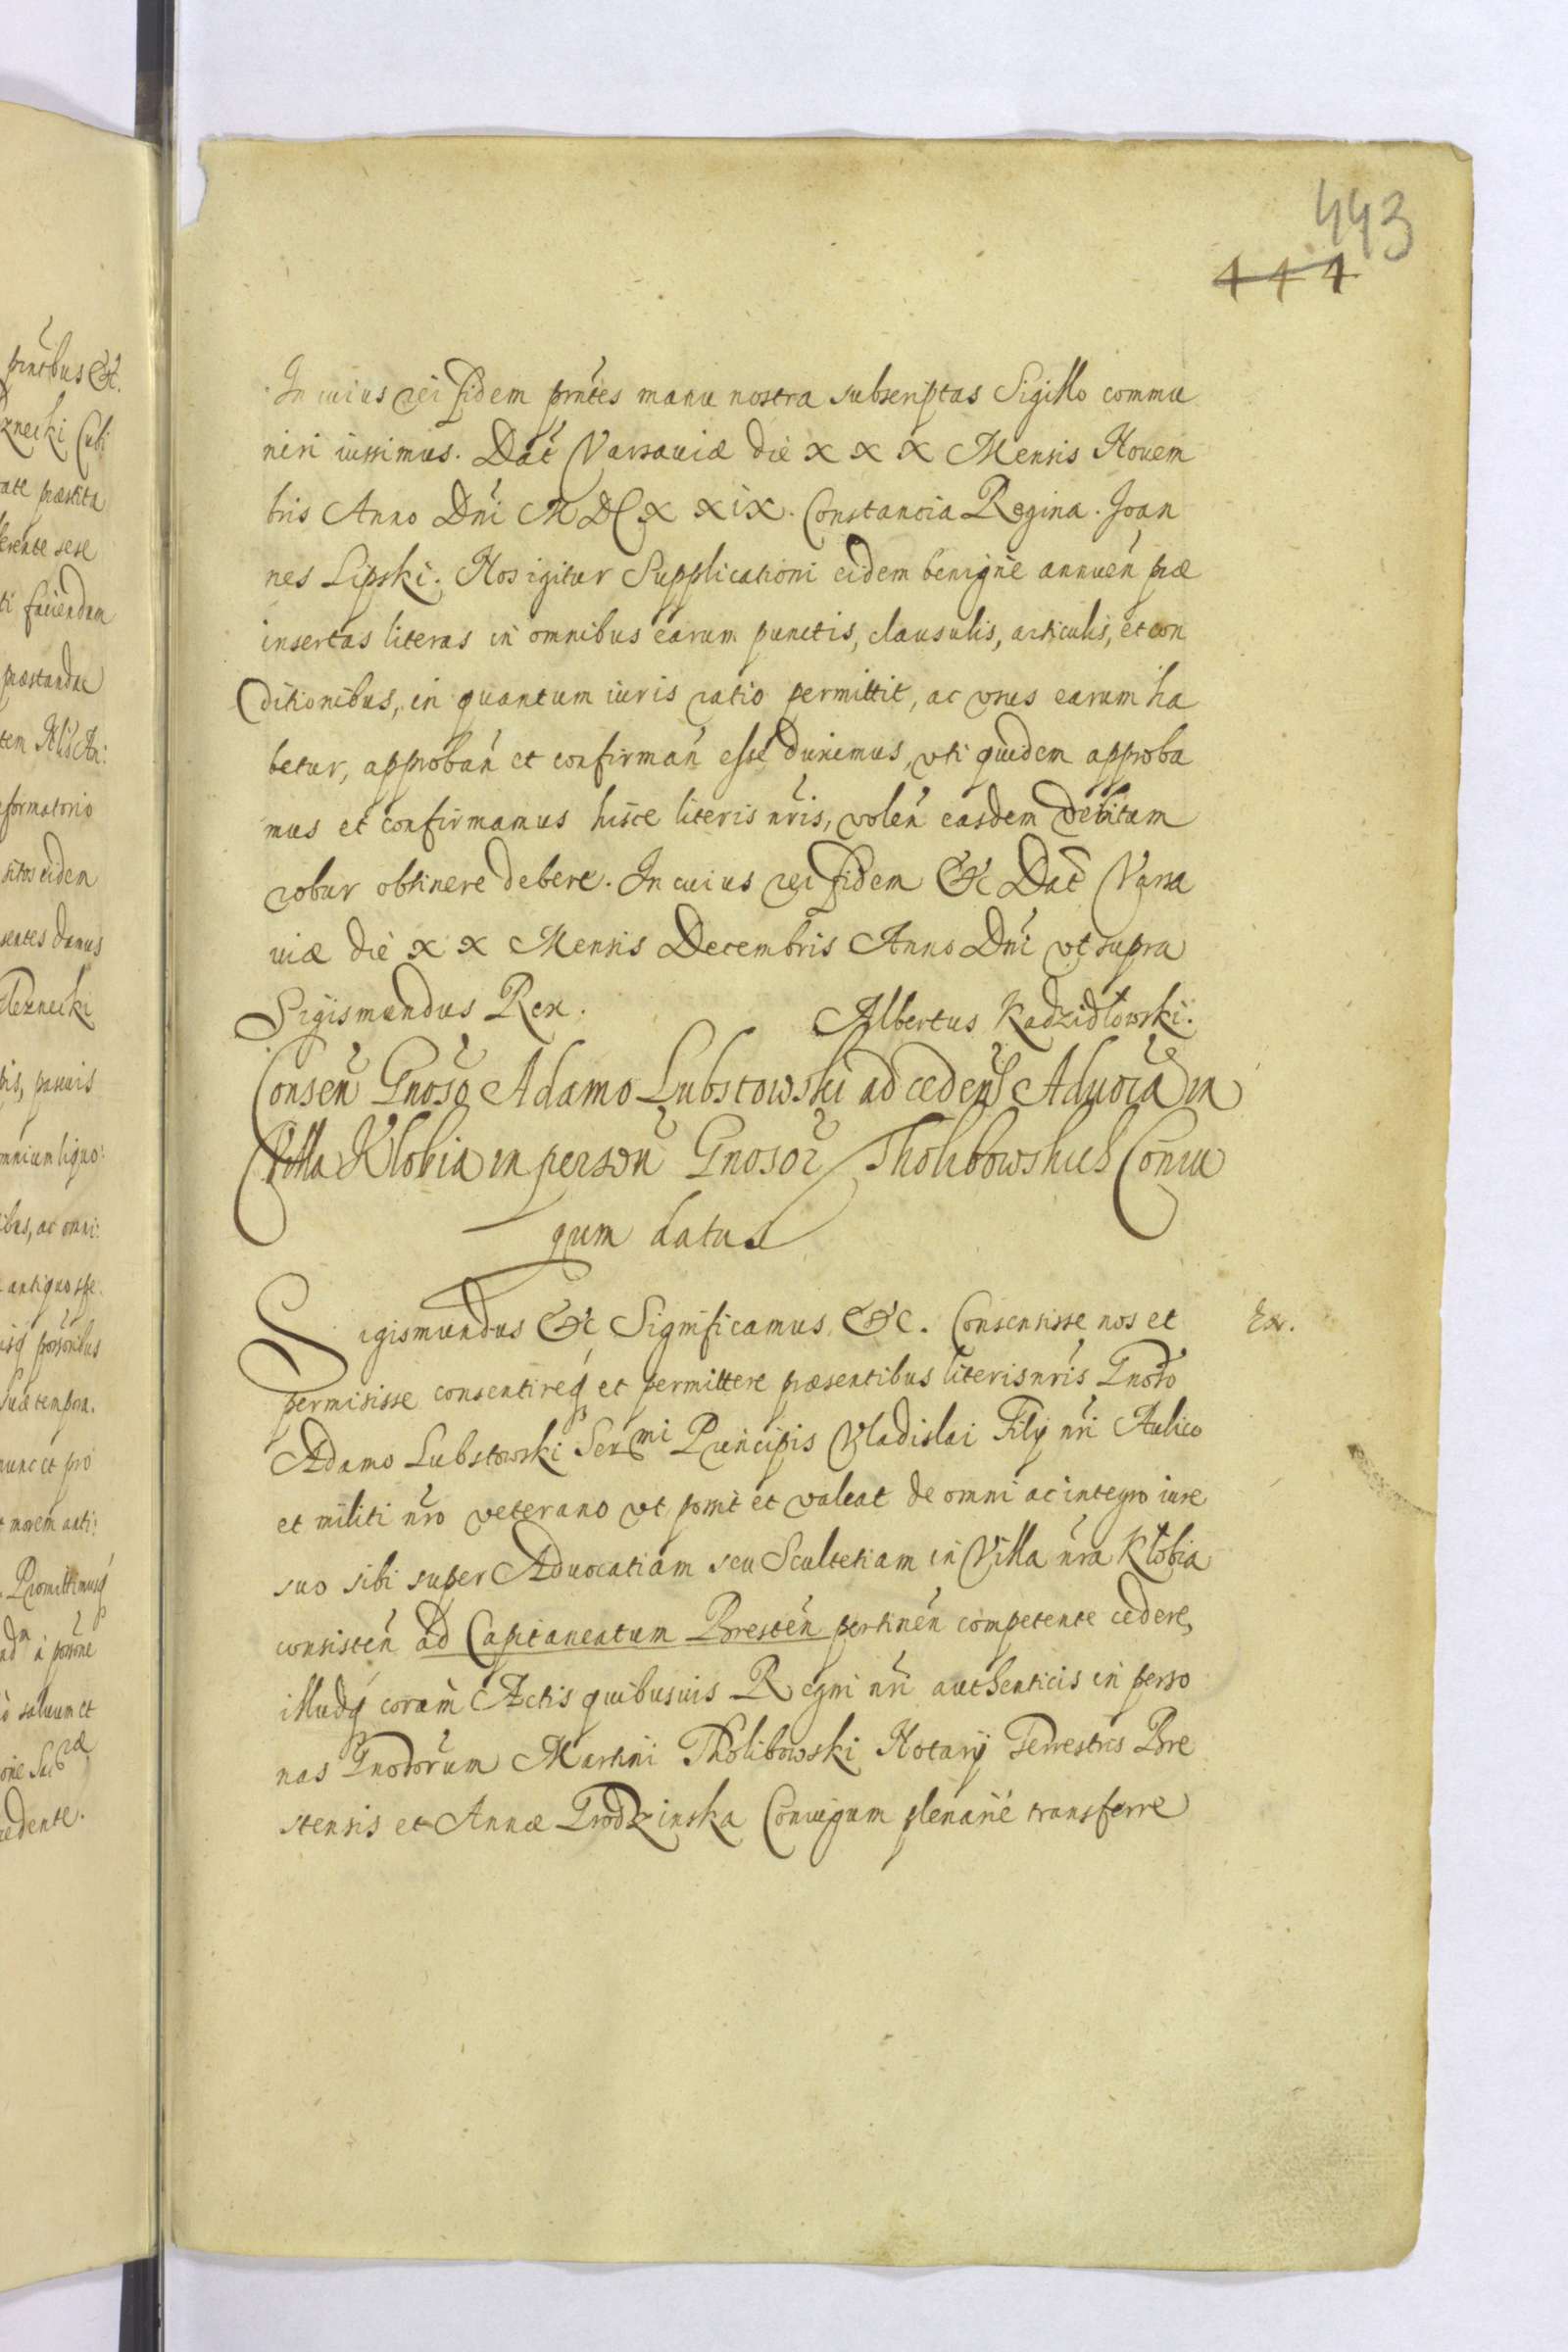 443
444
In cuius rei fidem prntes manu nostra subscriptas Sigillo commu
niri iussimus. Dat Varsauiæ die xxx Mensis Nouem
bris Anno Dni MDCXXIX. Constancia Regina. Joan
nes Lipski. Nos igitur Supplicationi eidem benigne annuen præ
insertas literas in omnibus earum punctis, clausulis, articulis, et con
ditionibus, in quantum iuris ratio permittit, ac vsus earum ha
betur, approban et confirman esse duximus, vti quidem approba
mus et confirmamus hisce literis nris, volen easdem debitum
robur obtinere debere. In cuius rei fidem &c Dat Varsa
uiæ die xx Mensis Decembris Anno Dni vt supra
Sigismundus Rex. Albertus Kadzidłowski.
Consen Gnoso Adamo Lubstowski ad cedend Aduocia in
Villa Klobia in person Gnosor Tholibowskich Coniu
gum datus
Sigismundus &c Significamus &c. Consensisse nos et
Ex.
permisisse consentireq et permittere præsentibus literis nris Gnoso
Adamo Lubstowski Sermi Principis Vladislai Filij nri Aulico
et militi nro veterano vt possit et valeat de omni ac integro iure
suo sibi super Aduocatiam seu Scultetiam in Villa nra Kłobia
consisten ad Capitaneatum Bresten pertinen competente cedere,
illudq coram Actis quibusuis Regni nri authenticis in perso
nas Gnosorum Martini Tholibowski Notarij Terrestris Bre
stensis et Annæ Grodzinska Coniugum plenarie transferre